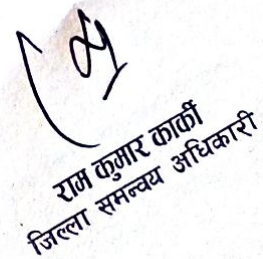 राम कुमार कार्की
जिल्ला समन्वय अधिकारी